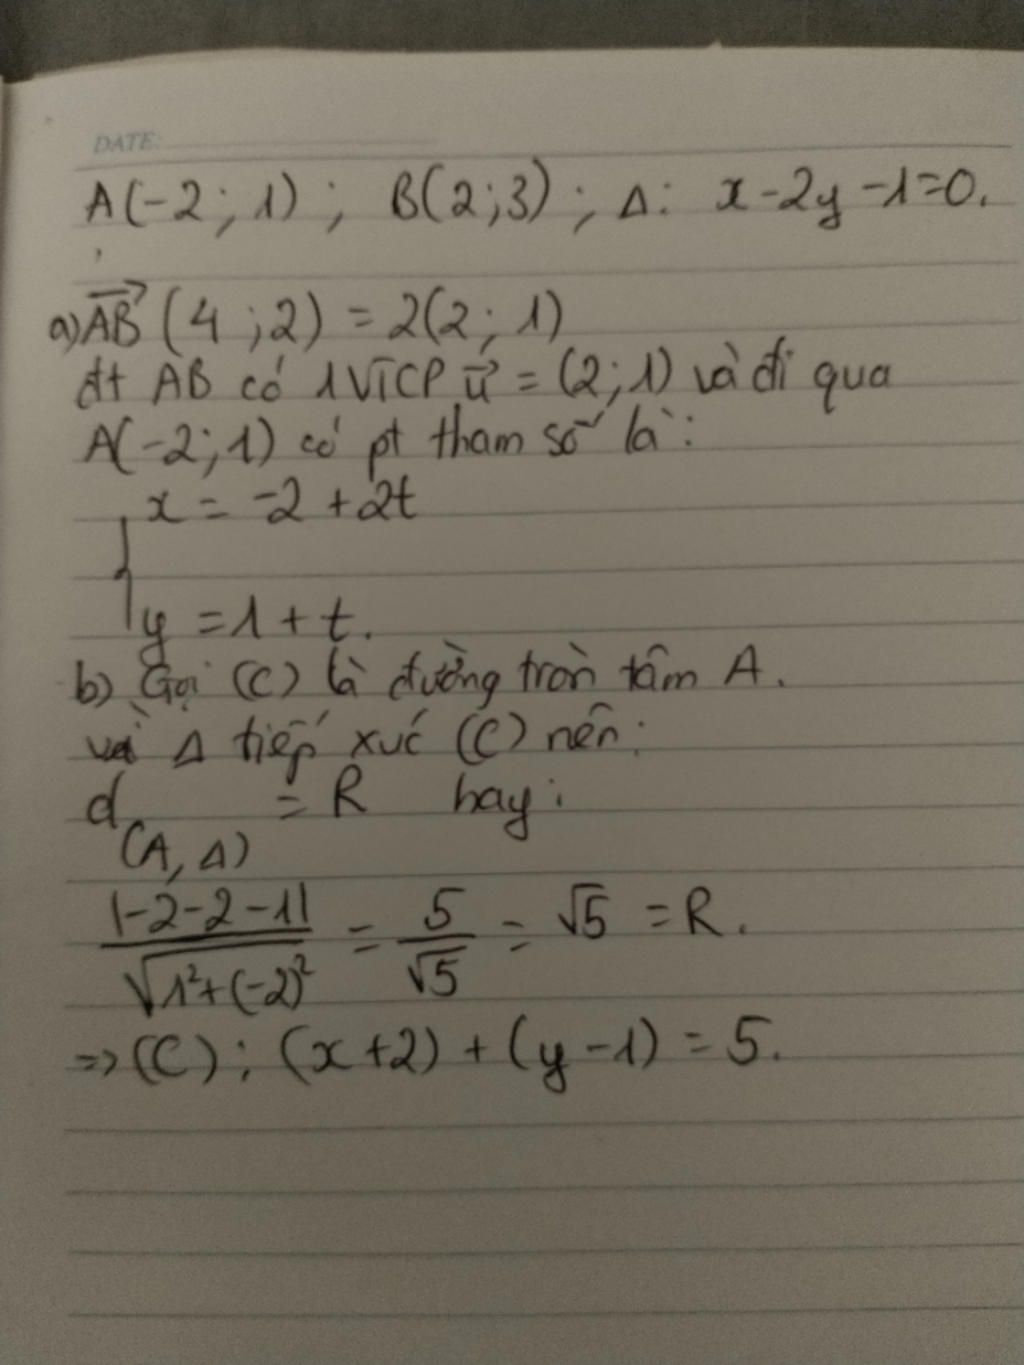 DATE:
A(-2; 1) ; B(2;3) ; Δ: x-2y-1=0.
a) $\overrightarrow{AB}$ (4 ;2) = 2(2; 1)
đt AB có 1 VTCP $\vec{u}$ = (2;1) và đi qua
A(-2;1) có pt tham số là:
{ x = -2 + 2t
y = 1 + t.
b) Gọi (C) là đường tròn tâm A.
và Δ tiếp xúc (C) nên:
d(A, Δ) = R hay:
$\frac{|-2-2-1|}{\sqrt{1^2+(-2)^2}} = \frac{5}{\sqrt{5}} = \sqrt{5} = R.$
=> (C): (x+2) + (y-1) = 5.